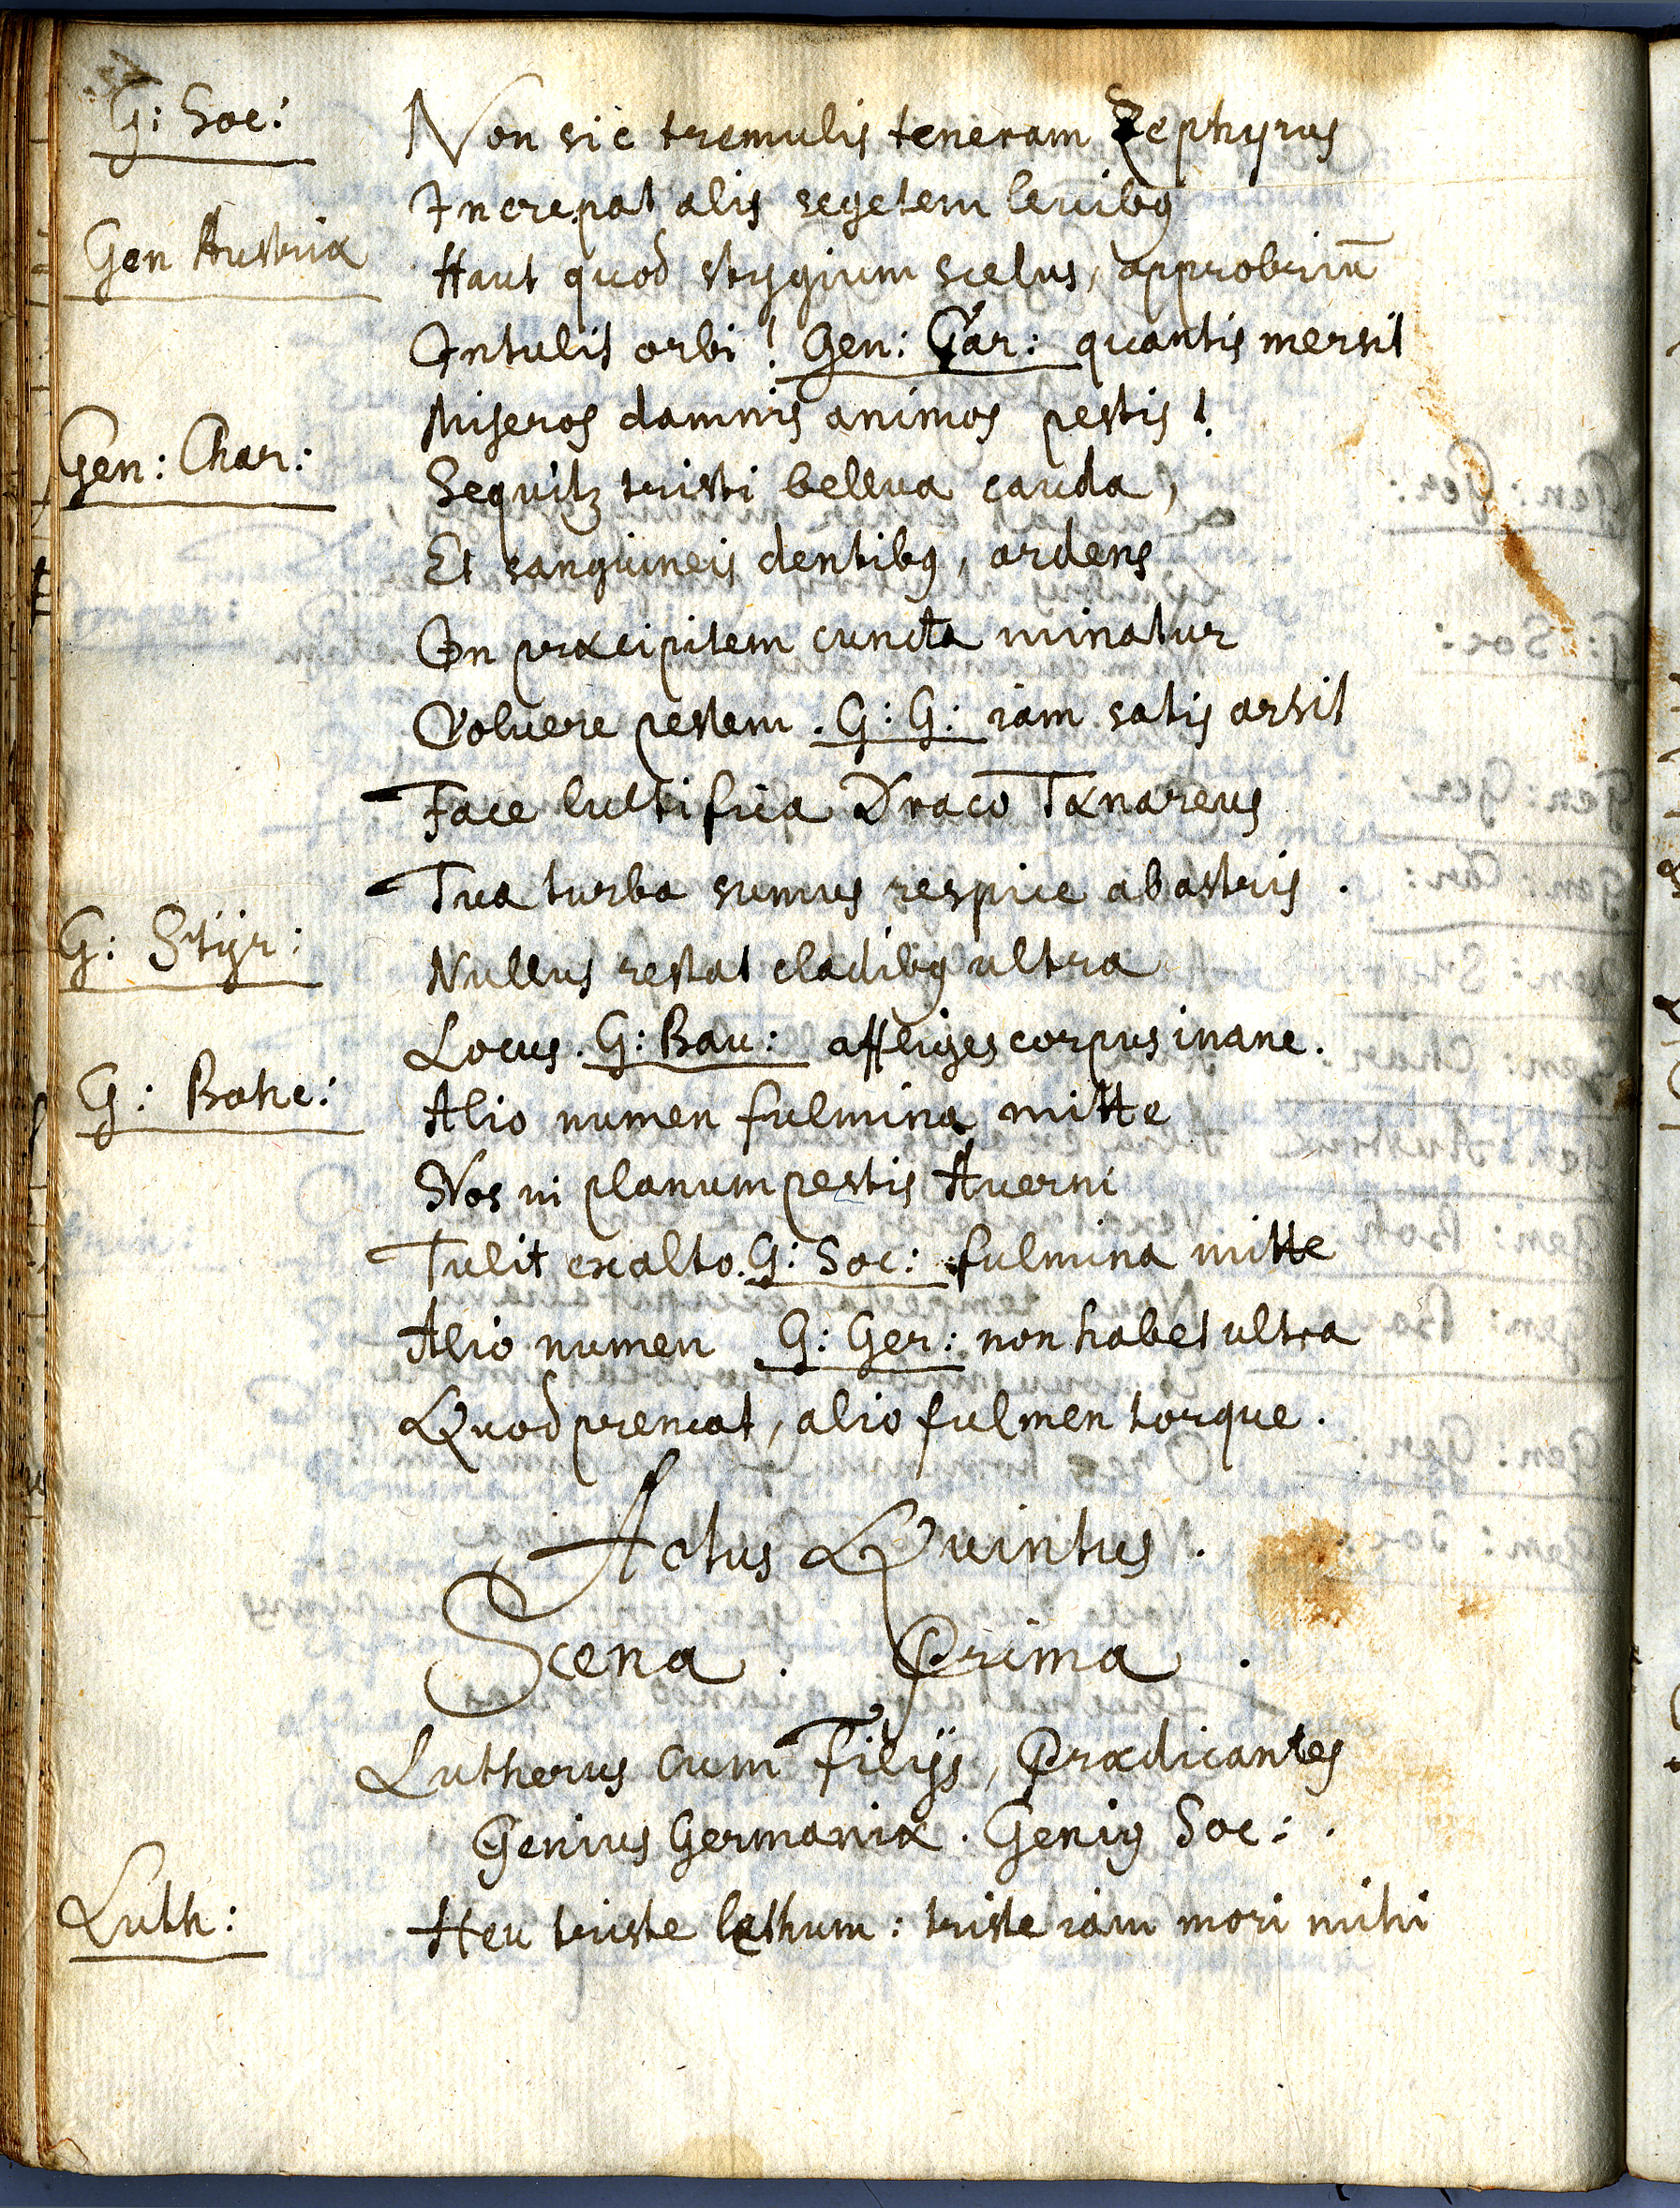 G: Soc: Non sic tremulis teneram Zephyrus
Increpat alis segetem levibꝯ
Gen Austriæ Haut quod stygium scelus, approbriū
Intulit orbi! Gen: Car: quantis mersit
Miseros damnis animos pestis!
Gen: Char: Sequitꝛ tristi bellua cauda,
Et sanguineis dentibꝯ, ardens
In præcipitem cuncta minatur
Volvere pestem. G: G: iam satis arsit
Face luctifica Draco Tænareus
Tua turba sumus respice ab astris.
G: Stÿr: Nullus restat cladibꝯ ultra
Locus. G: Bau: affliges corpus inane.
G: Bohe: Alio numen fulmina mitte
Nos in planum pestis Averni
Tulit ex alto. G: Soc: fulmina mitte
Alio numen G: Ger: non habet ultra
Quod premat, alio fulmen torque.
Actus Quintus.
Scena. Prima.
Lutherus cum Filijs, Prædicantes
Genius Germaniæ. Geniꝯ Soc:.
Luth: Heu triste lethum: triste iam mori mihi